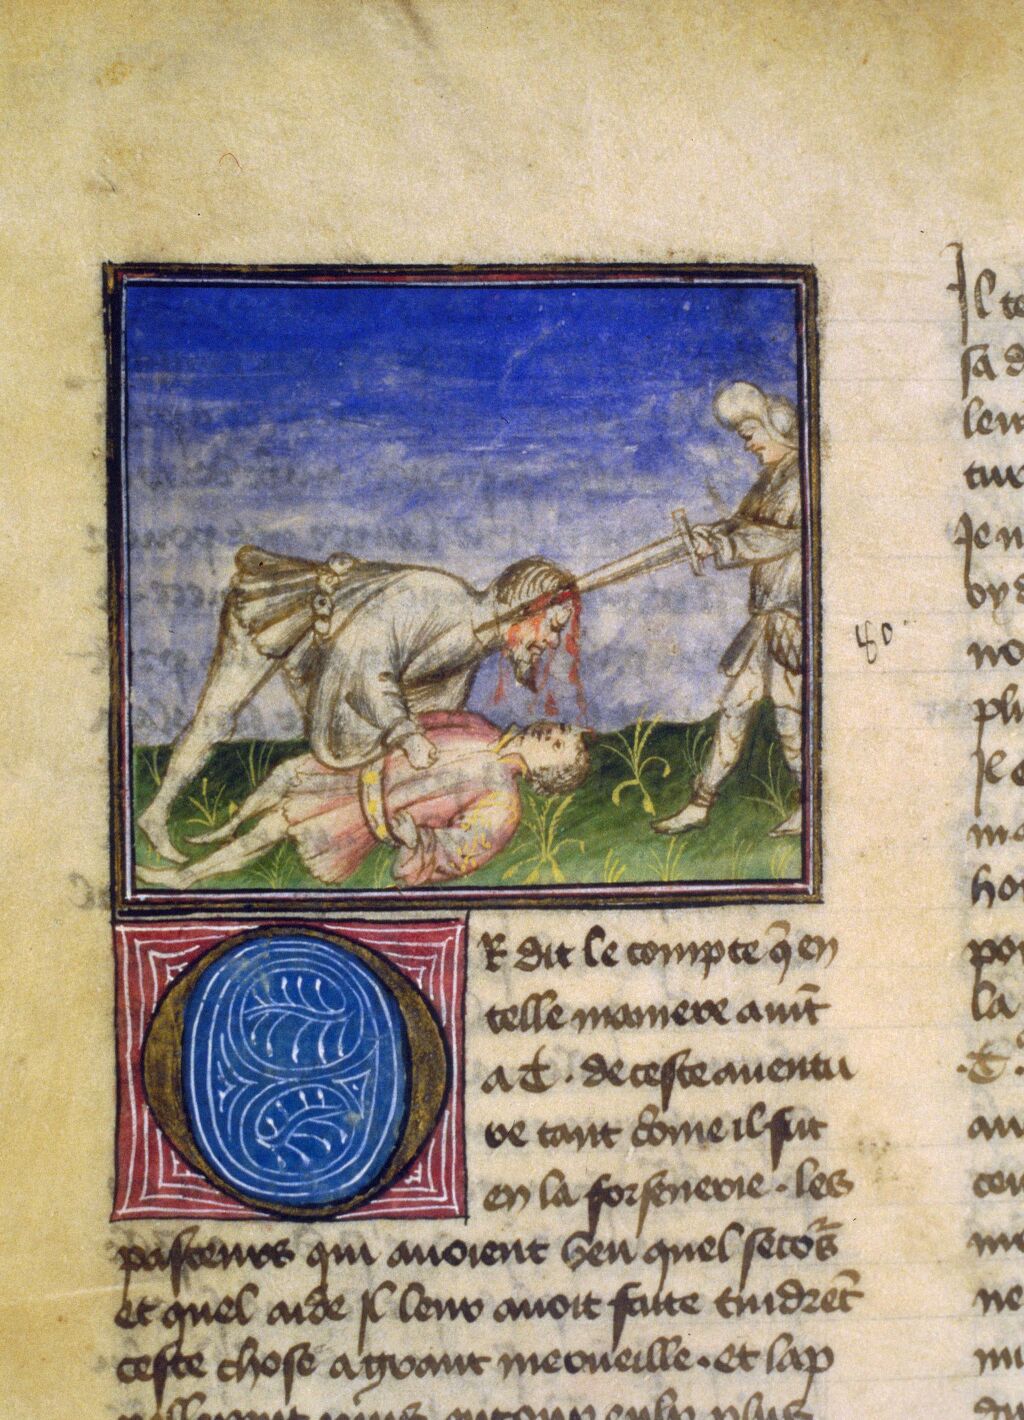 OR dit le compte q̄ en
telle maniere auīt
a T. de ceste auentu
re tant cōme il fut
en la forsenerie. les
pasteurs qui auoient veu quel secōrs
et quel aide Jl leur auoit faite tindrēt
ceste chose a grant merueille. et lap
Jl te
sa d
leur
tur
Je n
oyd
no
plu
Je
ma
hom
por
la
.T.
au
me
ne